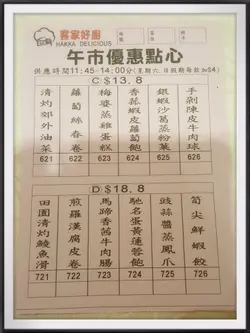 客家好廚
HAKKA DELICIOUS
午市優惠點心
供應時間11:45-14:00分(星期六.日假期每款加$4)
C:$13.8
清灼郊外油菜
蘿蔔絲春卷
梅婆蒸雞蛋糕
香菇蝦皮蘿蔔飽
銀蝦沙葛蒸粉粿
手剁陳皮牛肉球
621 622 623 624 625 626
D:$18.8
田園清灼鯪魚滑
煎羅漢腐皮卷
馬蹄香茜牛肉腸
馳名蛋黃蓮蓉飽
豉蒜醬蒸鳳爪
筍尖鮮蝦餃
721 722 723 724 725 726